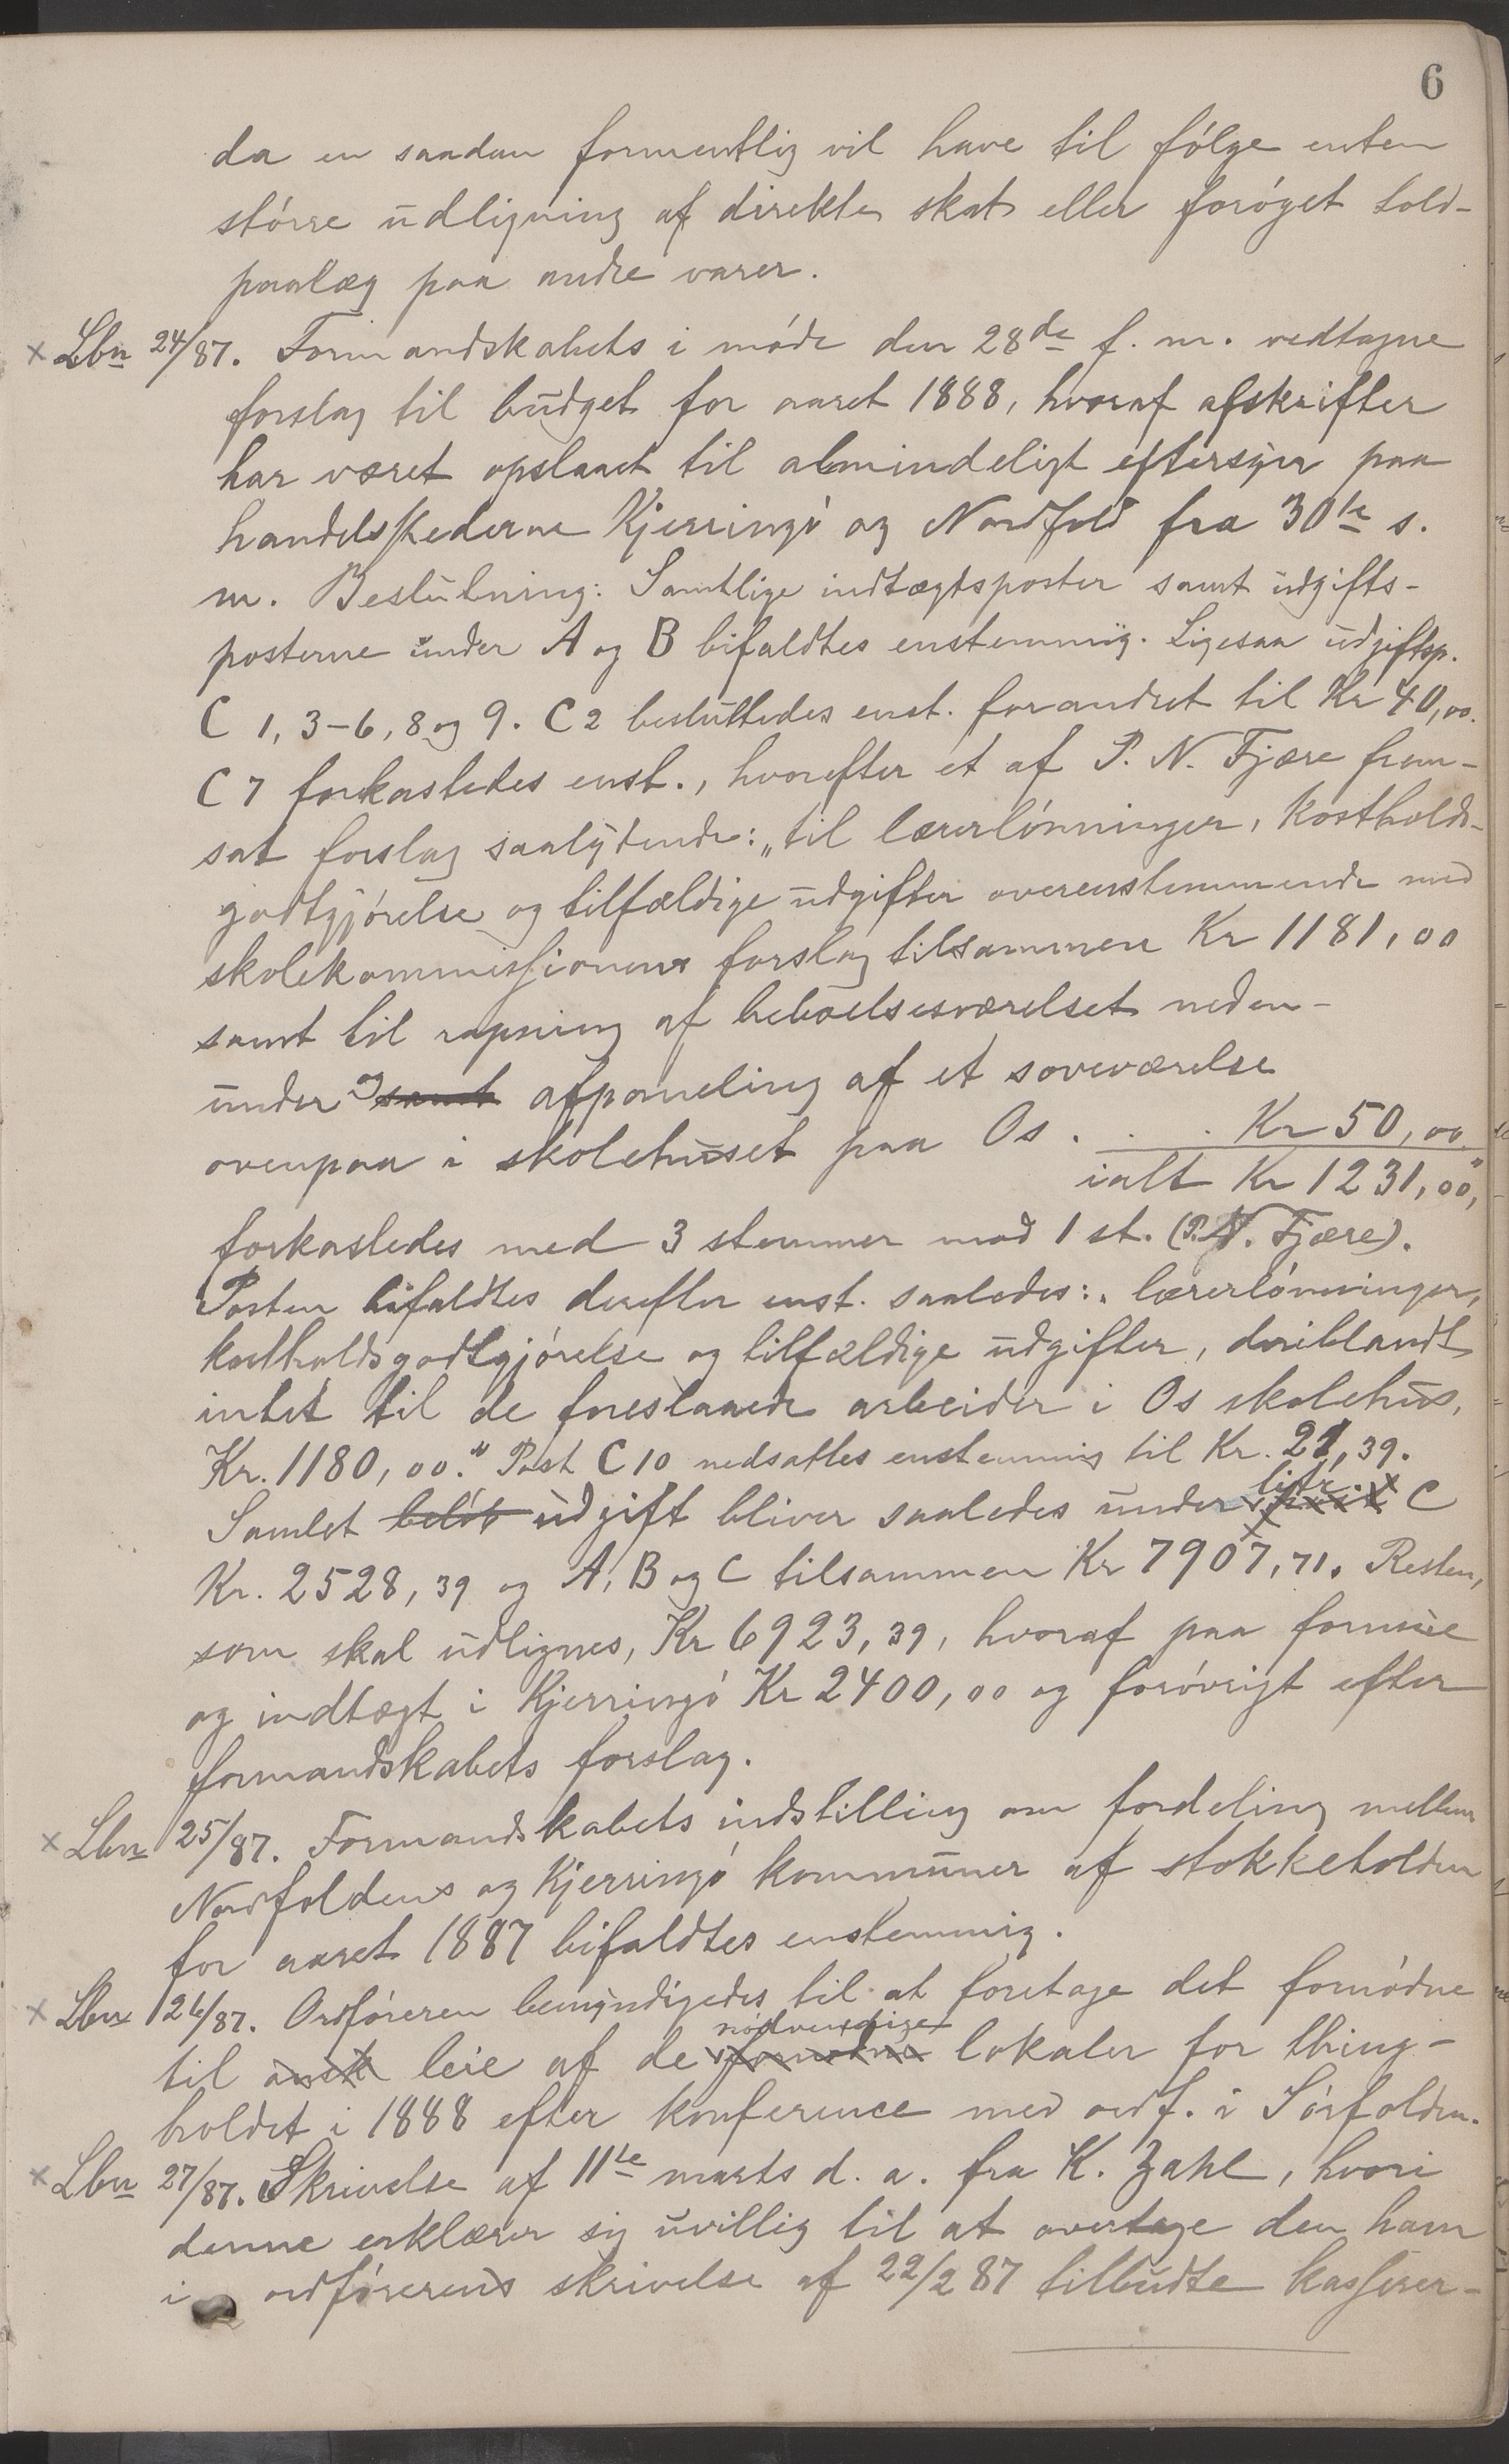 6
da en saadan formentlig vil have til følge enten
større udligning af direkte skat eller forøget told-
paalæg paa andre varer.
× Lbn 24/87. Formandskabets i møde den 28de f. m. vedtagne
forslag til budget for aaret 1888, hvoraf afskrifter
har været opslaaet til almindeligt eftersyn paa
handelsstederne Kjerringø og Nordfold fra 30te s.
m. Beslutning: Samtlige indtægtsposter samt udgifts-
posterne under A og B bifaldtes enstemmig. Ligesaa udgiftsp.
C 1, 3-6, 8 og 9. C 2 besluttedes enst. forandret til Kr 40,00.
C 7 forkastedes enst., hvorefter et af P. N. Fjære frem-
sat forslag saalydende: „til lærerlønninger, kostholds-
godtgjørelse og tilfældige udgifter overensstemmende med
skolekommissionens forslag tilsammen Kr 1181,00
samt til rapning af beboelsesværelset neden-
under og samt afpaneling af et soveværelse
ovenpaa i skolehuset paa Os . . . Kr 50,00
ialt Kr 1231,00",
forkastedes med 3 stemmer mod 1 st. (P. N. Fjære).
Posten bifaldtes derefter enst. saaledes: „lærerlønninger,
kostholdsgodtgjørelse og tilfældige udgifter, deriblandt
intet til de foreslaaede arbeider i Os skolehus,
Kr. 1180,00." Post C 10 nedsattes enstemmig til Kr. 21,39.
Samlet beløb udgift bliver saaledes under litr. C
Kr. 2528,39 og A, B og C tilsammen Kr 7907,71. Resten,
som skal udlignes, Kr 6923,39, hvoraf paa formue
og indtægt i Kjerringø Kr 2400,00 og forøvrigt efter
formandskabets forslag.
× Lbn 25/87. Formandskabets indstilling om fordeling mellem
Nordfoldens og Kjerringø kommuner af stokkeholden
for aaret 1887 bifaldtes enstemmig.
× Lbn 26/87. Ordføreren bemyndigedes til at foretage det fornødne
nødvendige
til leie af de fornødne lokaler for thing-
holdet i 1888 efter konference med ordf. i Sørfolden.
× Lbn 27/87. Skrivelse af 11te marts d. a. fra K. Zahl, hvori
denne erklærer sig uvillig til at overtage den ham
i ordførerens skrivelse af 22/2 87 tilbudte kasserer-